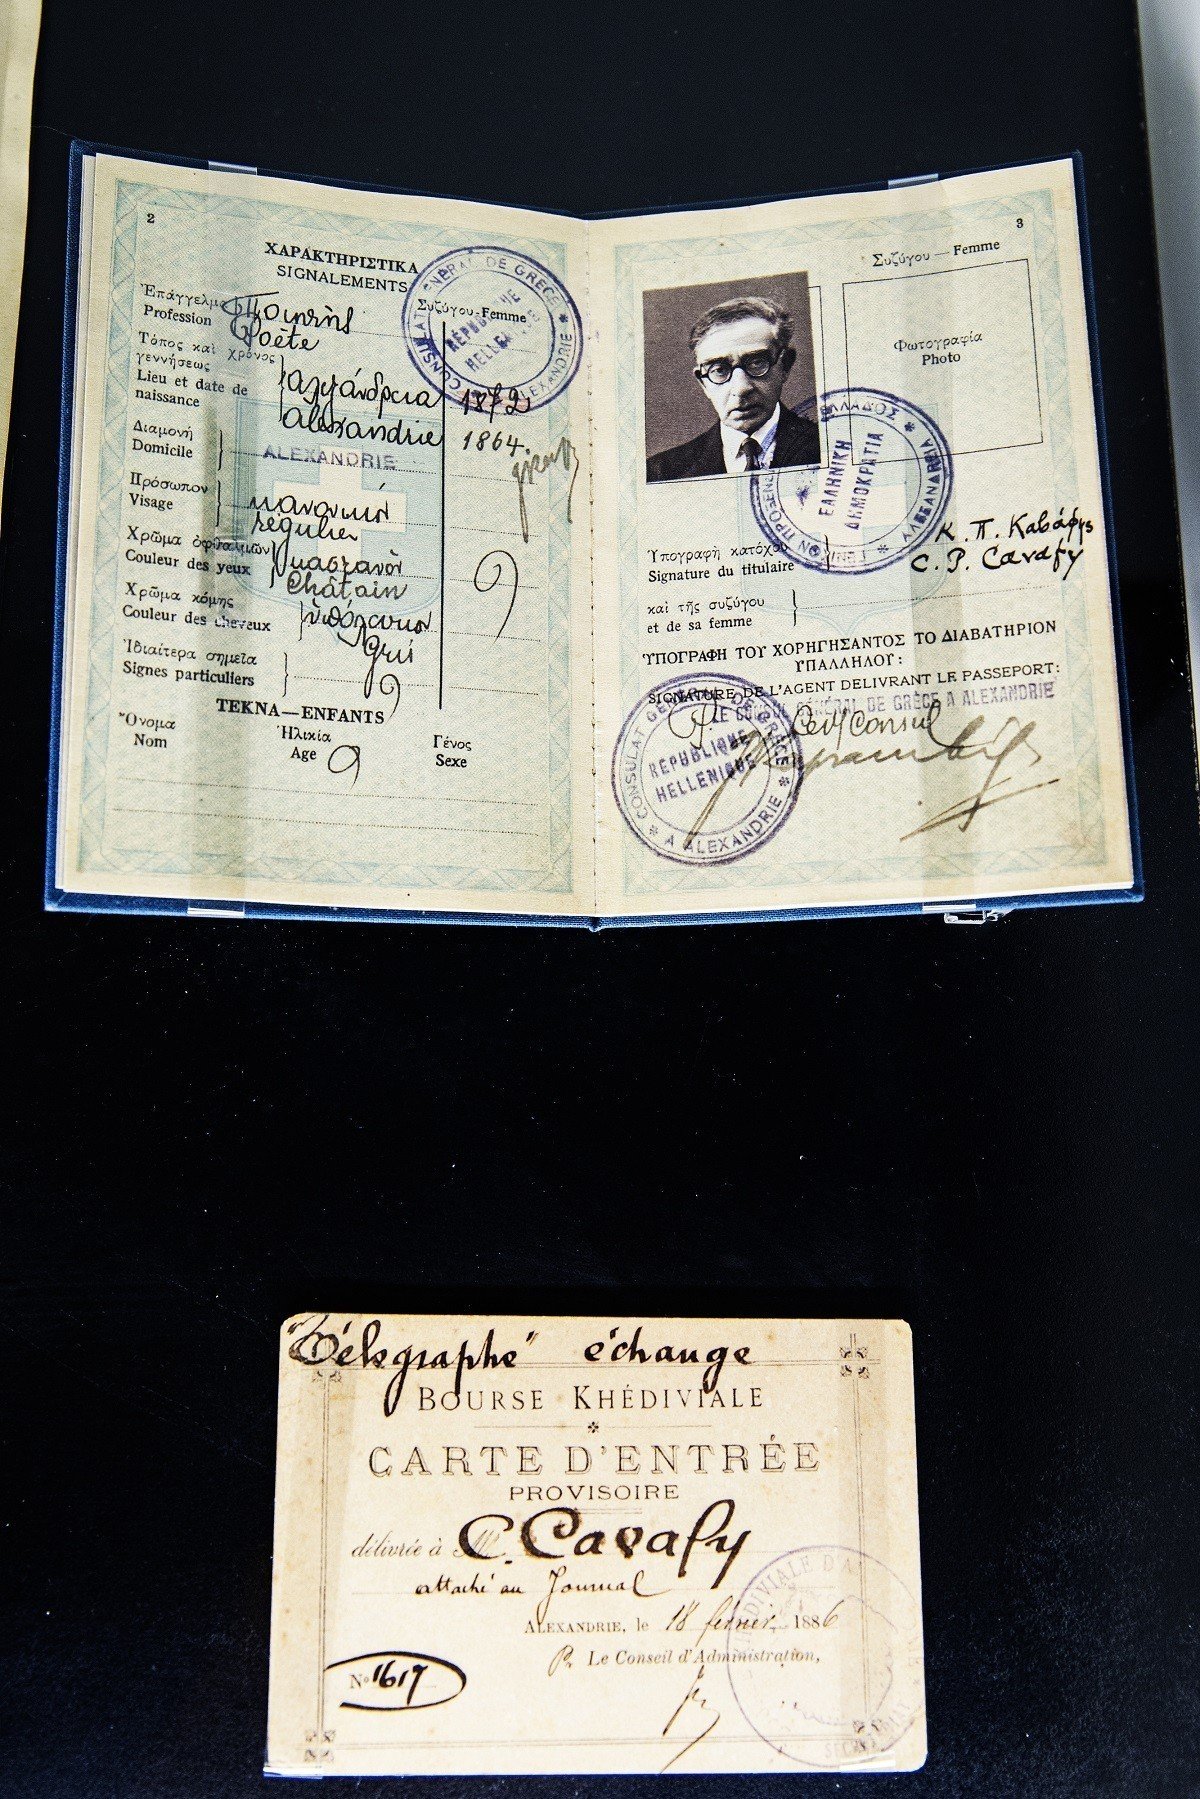 2
ΧΑΡΑΚΤΗΡΙΣΤΙΚΑ
SIGNALEMENTS
Ἐπάγγελμα Ποιητής
Profession Poète
Συζύγου-Femme
Τόπος καὶ χρόνος
γεννήσεως Αλεξάνδρεια 1872
Lieu et date de
naissance Alexandrie 1864
Διαμονή
Domicile ALEXANDRIE
Πρόσωπον κανονικόν
Visage régulier
Χρῶμα ὀφθαλμῶν καστανόν
Couleur des yeux Châtain
Χρῶμα κόμης ὑπόλευκον
Couleur des cheveux Gris
Ἰδιαίτερα σημεῖα
Signes particuliers
ΤΕΚΝΑ—ENFANTS
Ὄνομα Ἡλικία Γένος
Nom Age Sexe
CONSULAT GENERAL DE GRECE * A ALEXANDRIE *
RÉPUBLIQUE
HELLENIQUE
3
Συζύγου — Femme
Φωτογραφία
Photo
ΕΛΛΑΔΟΣ * ΑΛΕΞΑΝΔΡΕΙΑ *
ΕΛΛΗΝΙΚΗ
ΔΗΜΟΚΡΑΤΙΑ
Ὑπογραφὴ κατόχου Κ. Π. Καβάφης
Signature du titulaire C. P. Cavafy
καὶ τῆς συζύγου
et de sa femme
ὙΠΟΓΡΑΦΗ ΤΟΥ ΧΟΡΗΓΗΣΑΝΤΟΣ ΤΟ ΔΙΑΒΑΤΗΡΙΟΝ
ὙΠΑΛΛΗΛΟΥ:
SIGNATURE DE L'AGENT DELIVRANT LE PASSEPORT:
LE CONSUL GÉNÉRAL DE GRÈCE A ALEXANDRIE
Consul
CONSULAT GENERAL DE GRECE * A ALEXANDRIE *
REPUBLIQUE
HELLENIQUE
"Télégraphe" échange
BOURSE KHÉDIVIALE
CARTE D'ENTRÉE
PROVISOIRE
délivrée à Mr C. Cavafy
attaché au Journal
ALEXANDRIE, le 18 février 1886
Pr Le Conseil d'Administration,
No 1617